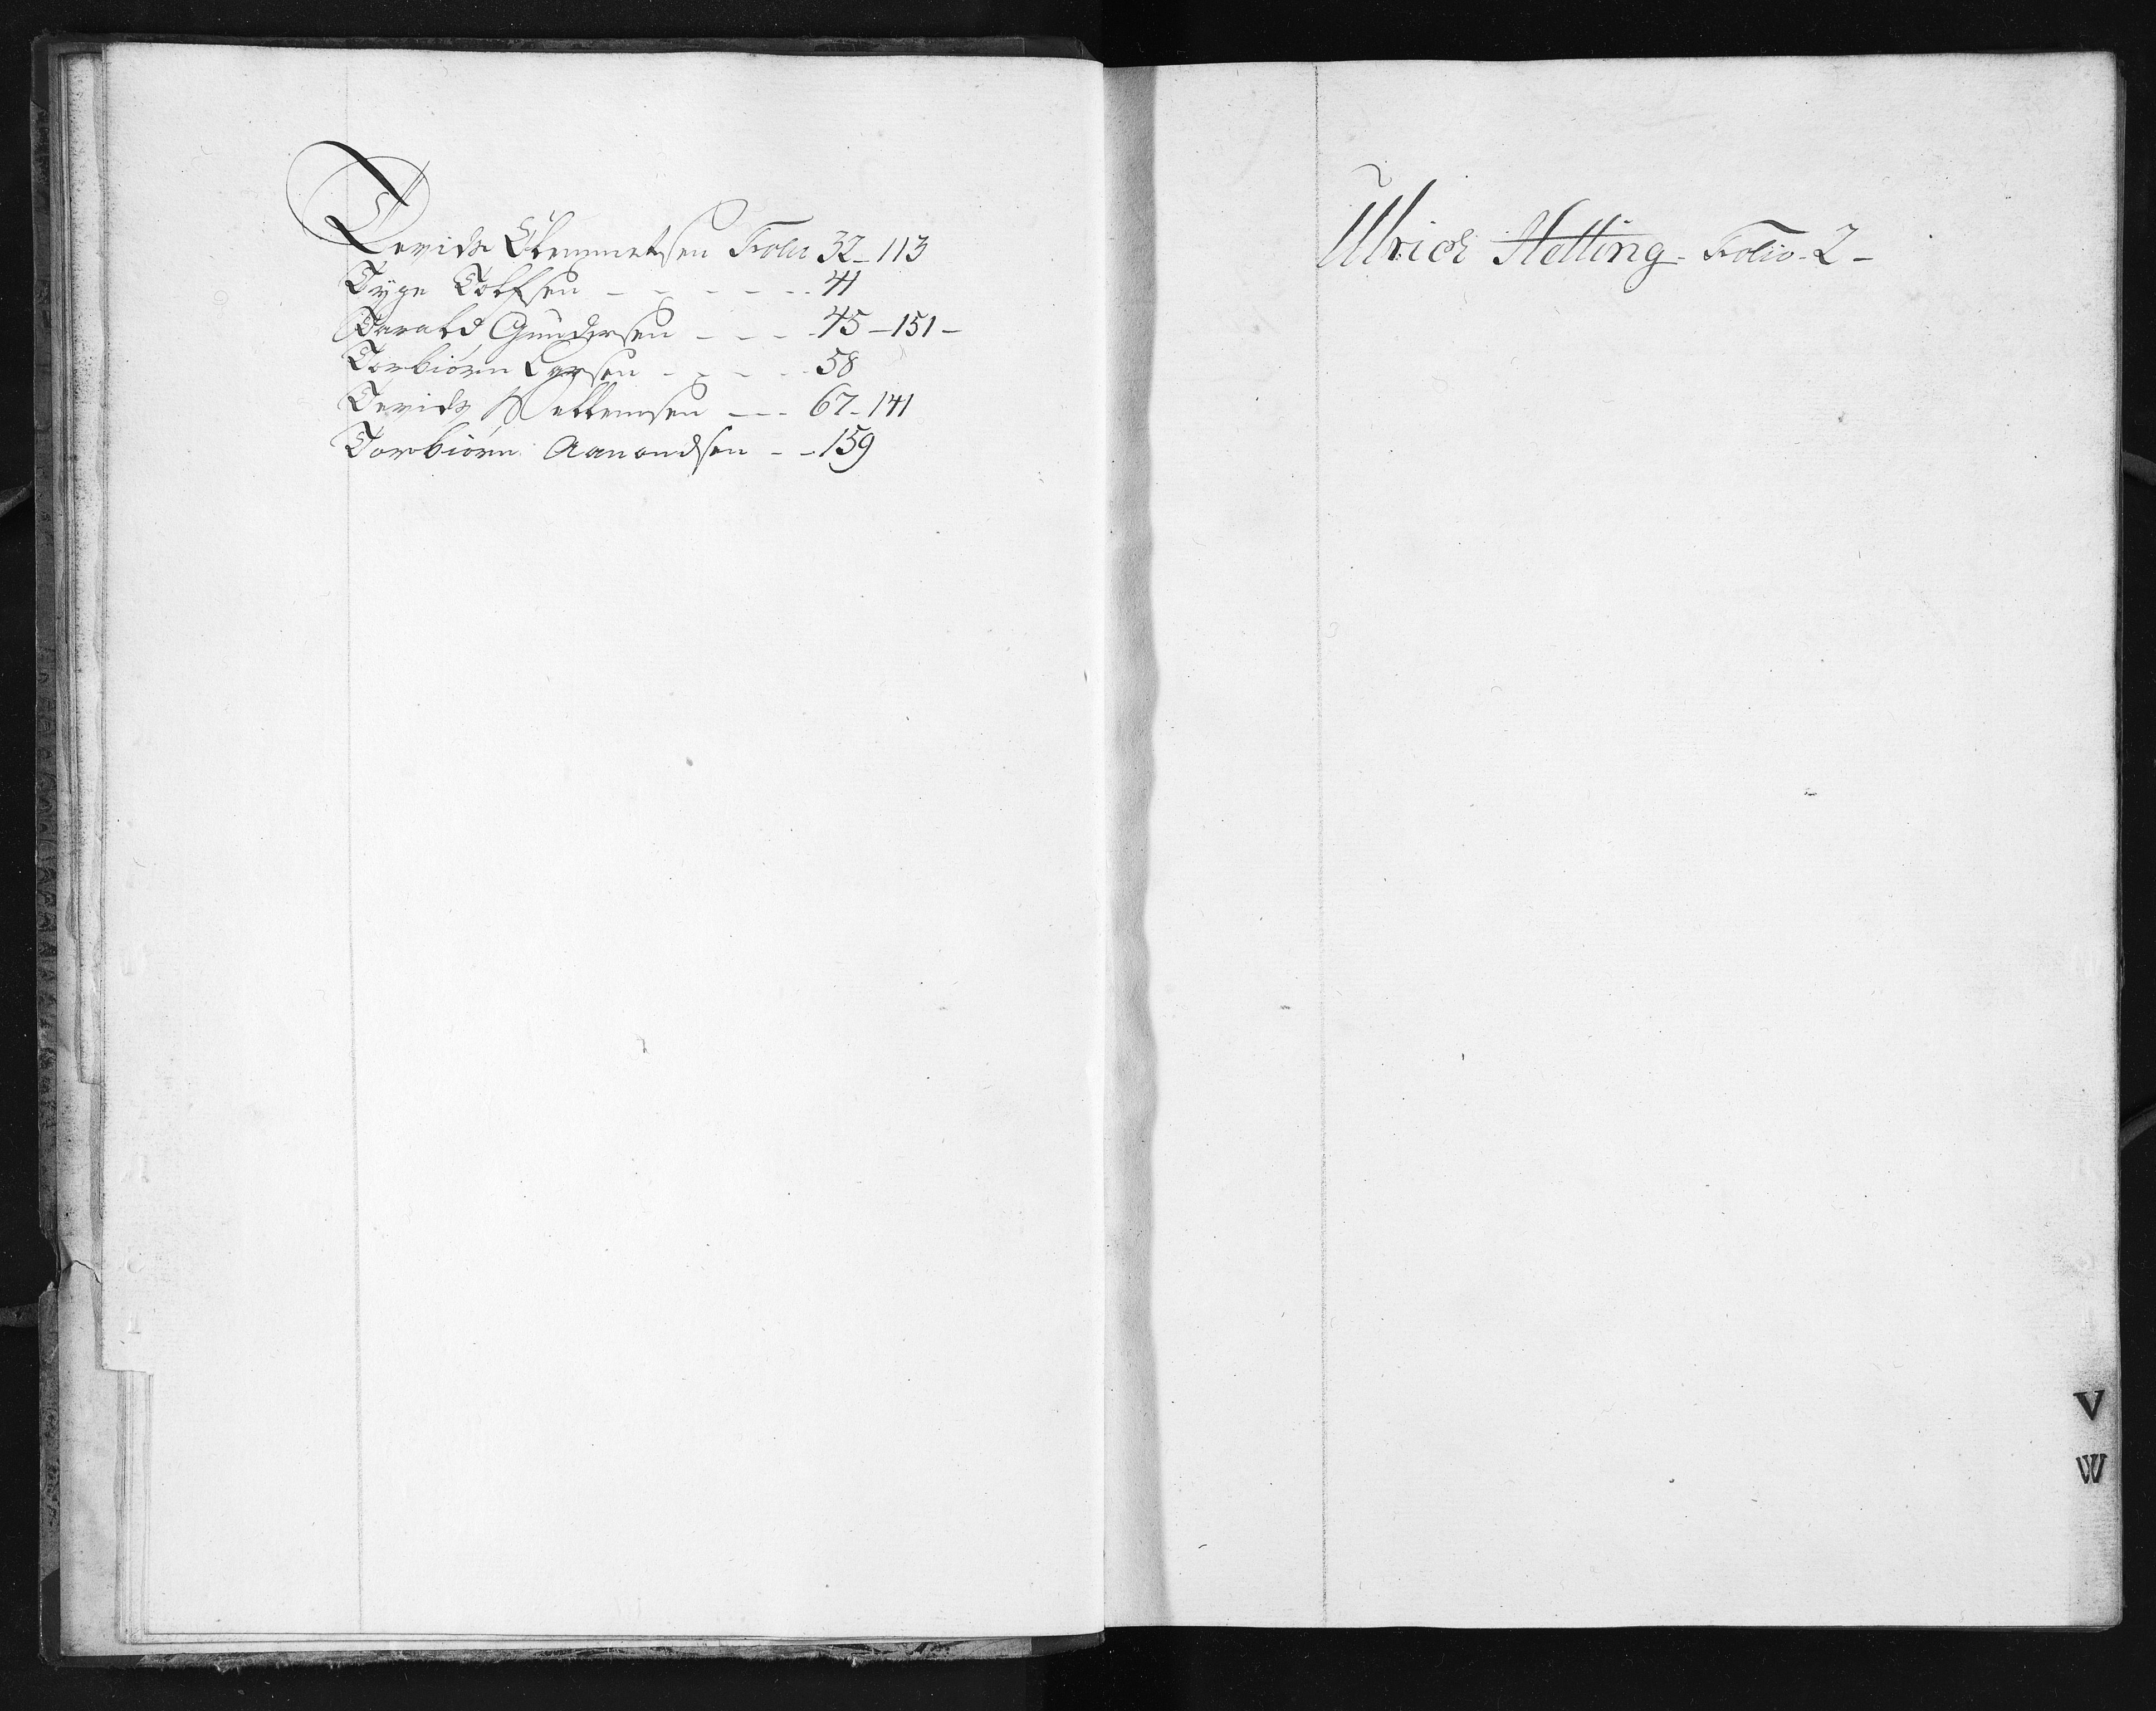 Terids Clemmetsen Folio 32_113
Tyge Tolfsen - - - - - - 41
Tarald Gundersen - - - 45-151-
Torbiørn Larsen - - - - - 58
Terids Wettemsen --- 67-141
Torbiørn Aanondsen - - 159
Ulrich Helling - Folio - 2 -
V
W